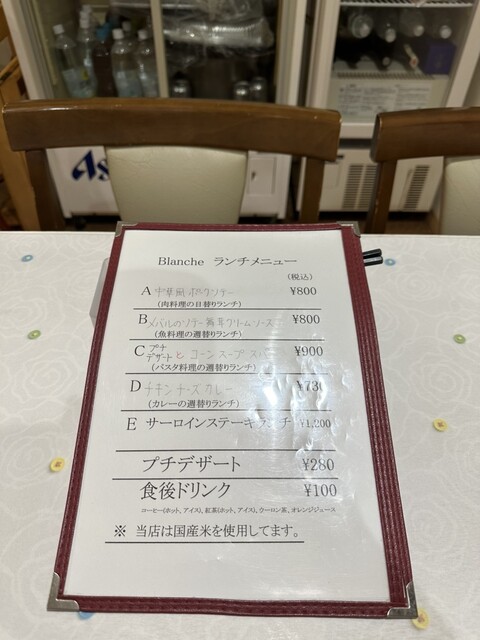 As
Blanche ランチメニュー
(税込)
A 中華風ポークソテー ¥800
(肉料理の日替りランチ)
B メバルのソテー 舞茸クリームソース ¥800
(魚料理の週替りランチ)
C プチデザートと コーンスープスパ ¥900
(パスタ料理の週替りランチ)
D チキンチーズカレー ¥730
(カレーの週替りランチ)
E サーロインステーキランチ ¥1,200
プチデザート ¥280
食後ドリンク ¥100
コーヒー(ホット、アイス)、紅茶(ホット、アイス)、ウーロン茶、オレンジジュース
※ 当店は国産米を使用してます。